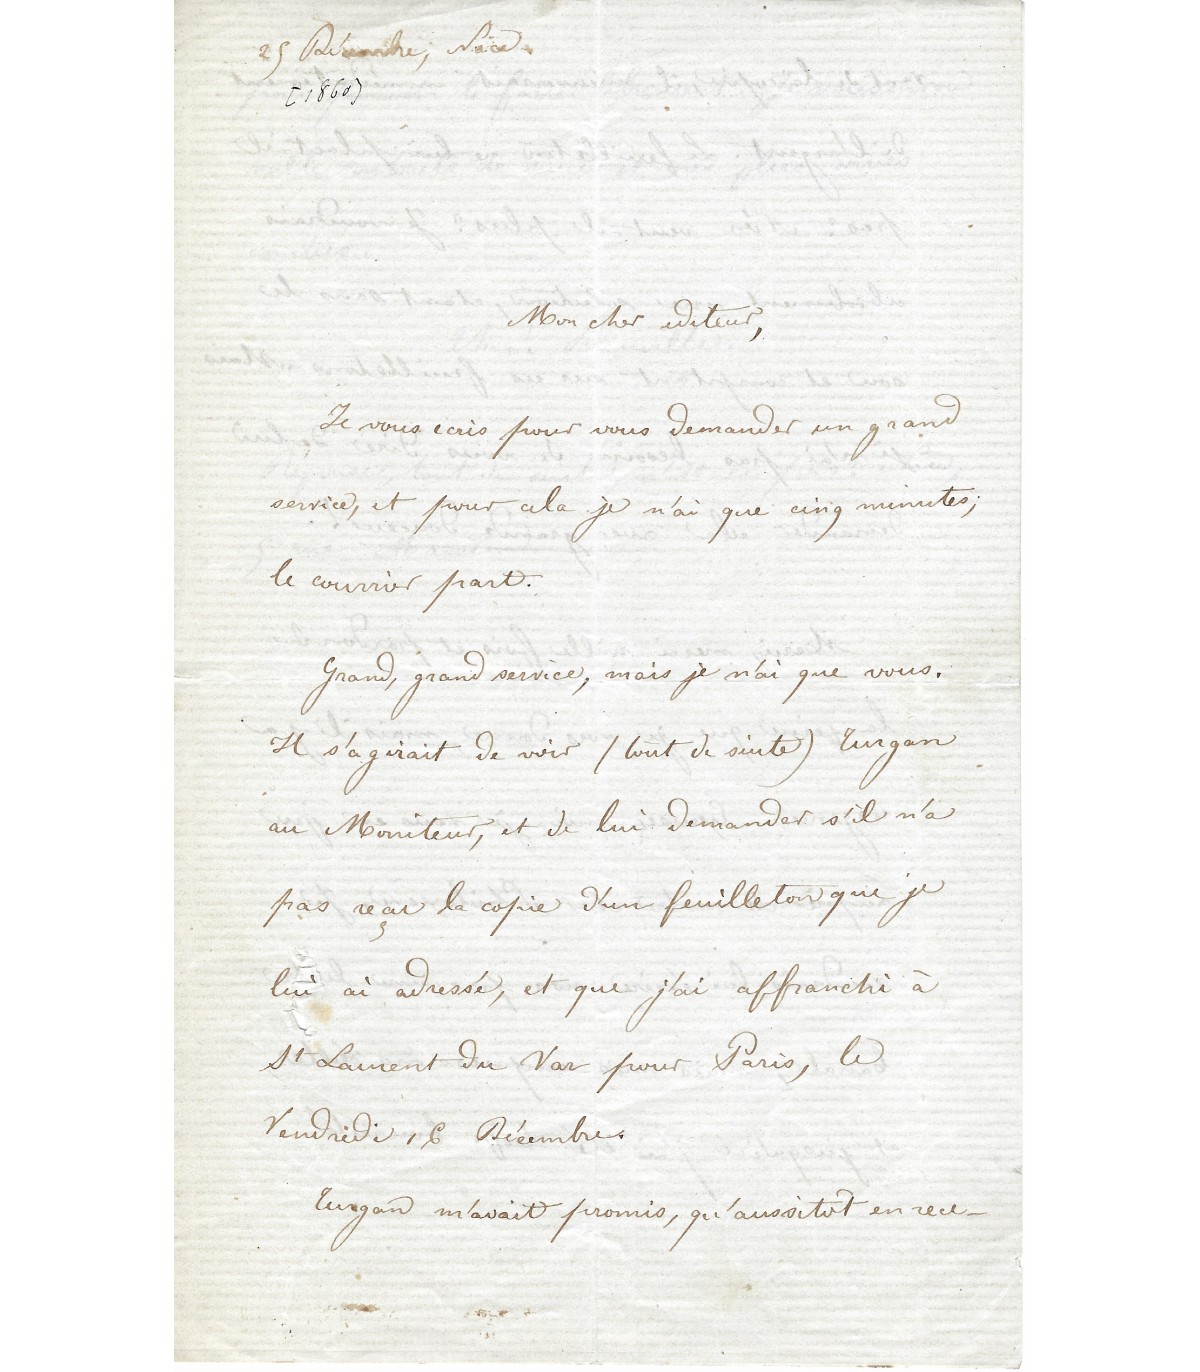 25 Décembre, Nice.
[1860]
Mon cher editeur,
Je vous ecris pour vous demander un grand
service, et pour cela je n'ai que cinq minutes;
le courrier part.
Grand, grand service, mais je n'ai que vous.
Il s'agirait de voir (tout de suite) Turgan
au Moniteur, et de lui demander s'il n'a
pas reçu la copie d'un feuilleton que je
lui ai adressé, et que j'ai affranchi à
St Laurent du Var pour Paris, le
Vendredi 16 Décembre.
Turgan m'avait promis, qu'aussitot en rece-